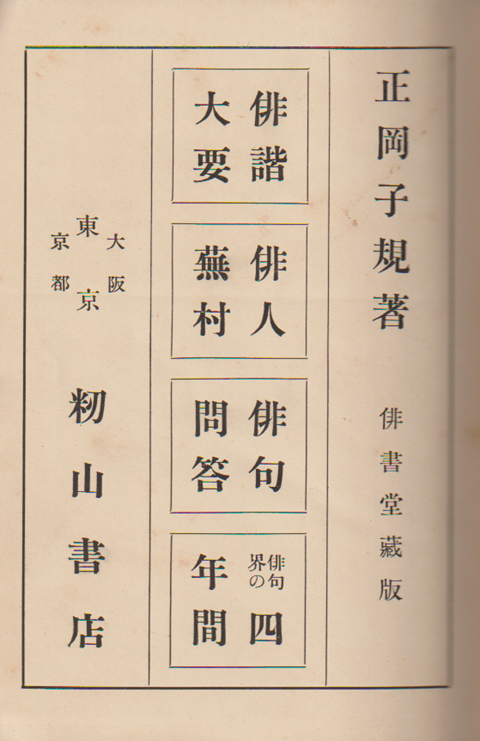 正岡子規著
俳書堂藏版
俳諧
大要
俳人
蕪村
俳句
問答
俳句
界の
四
年間
大阪
東京
京都
籾山書店